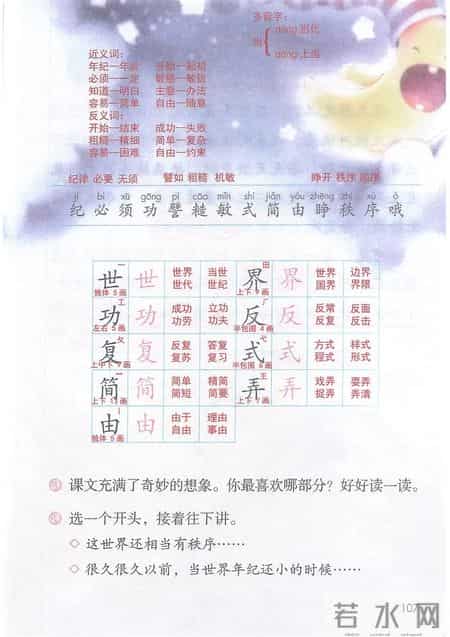 多音字：
dāng 当代
当
dàng 上当
近义词：
年纪—年龄 开始—起初
必须—一定 敏感—敏锐
知道—明白 主意—办法
容易—简单 自由—随意
反义词：
开始—结束 成功—失败
粗糙—精细 简单—复杂
容易—困难 自由—约束
纪律 必要 无须 譬如 粗糙 机敏 睁开 秩序 顺序
jì bì xū gōng pì cāo mǐn shì jiǎn yóu zhēng zhì xù ò
纪 必 须 功 譬 糙 敏 式 简 由 睁 秩 序 哦
世 世 世界 当世 界 界 世界 边界
世代 世纪 国界 界限
独体 5画 上下 9画
功 功 成功 立功 反 反 反常 反面
功劳 功夫 反复 反击
左右 5画 半包围 4画
复 复 反复 答复 式 式 方式 样式
复苏 复习 程式 形式
上中下 9画 半包围 6画
简 简 简单 精简 弄 弄 戏弄 耍弄
简短 简要 捉弄 弄清
上下 13画 上下 7画
由 由 由于 理由
自由 事由
独体 5画
课文充满了奇妙的想象。你最喜欢哪部分？好好读一读。
选一个开头，接着往下讲。
◇ 这世界还相当有秩序……
◇ 很久很久以前，当世界年纪还小的时候……
107
若水网